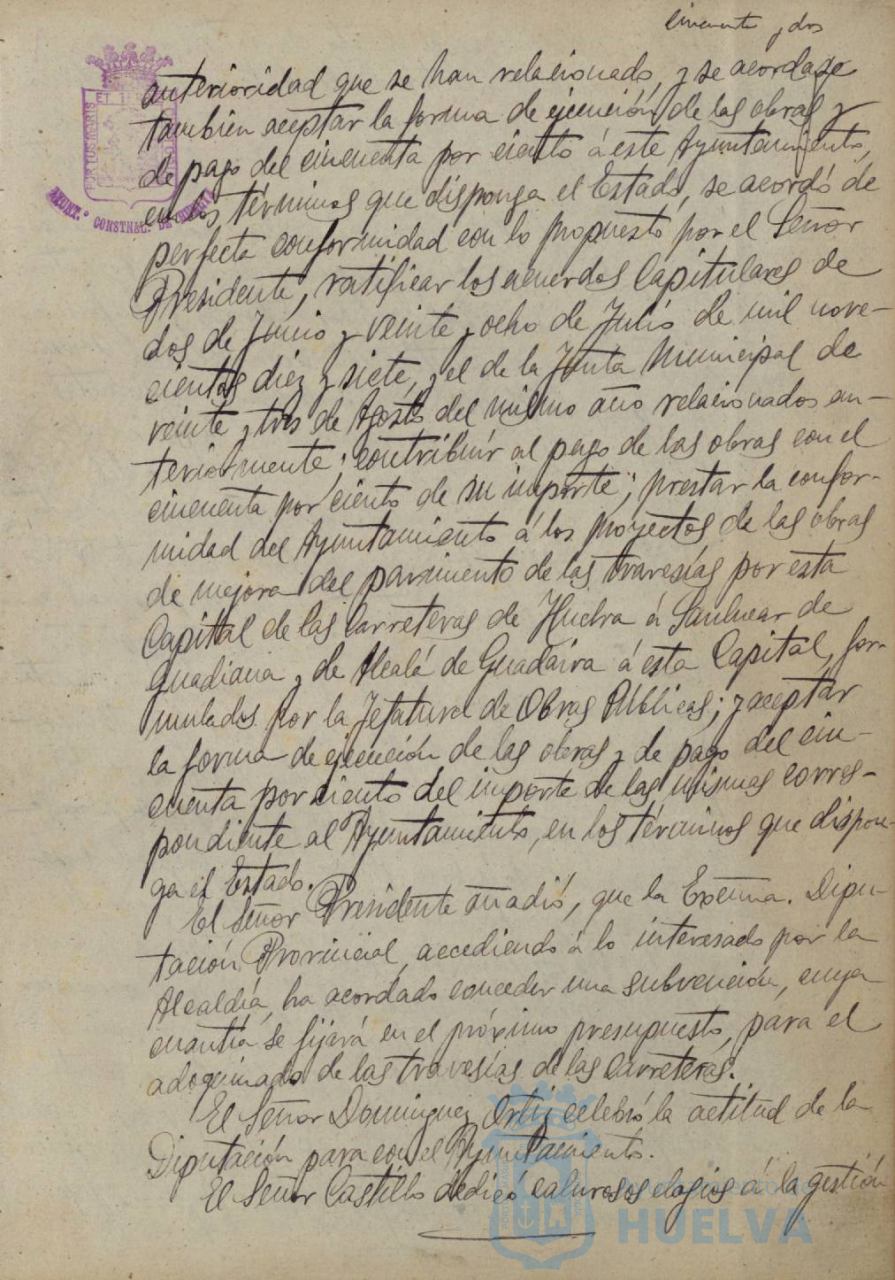 cincuenta y dos
anterioridad que se han relacionado, y se acordase
tambien aceptar la forma de ejecución de las obras y
de pago del cincuenta por ciento á este Ayuntamiento,
en los términos que disponga el Estado, se acordó de
perfecta conformidad con lo propuesto por el Señor
Presidente, ratificar los acuerdos Capitulares de
dos de Junio y veinte y ocho de Julio de mil nove-
cientos diez y siete, y el de la Junta Municipal de
veinte y tres de Agosto del mismo año relacionados an-
teriormente; contribuir al pago de las obras con el
cincuenta por ciento de su importe; prestar la confor-
midad del Ayuntamiento á los proyectos de las obras
de mejora del pavimento de las travesías por esta
Capital de las carreteras de Huelva á Sanlucar de
Guadiana y de Alcalá de Guadaira á esta Capital, for-
mulados por la Jefatura de Obras Públicas; y aceptar
la forma de ejecución de las obras y de pago del cin-
cuenta por ciento del importe de las mismas corres-
pondiente al Ayuntamiento, en los términos que dispon-
ga el Estado.
El Señor Presidente añadió, que la Excma. Dipu-
tación Provincial, accediendo á lo interesado por la
Alcaldía, ha acordado conceder una subvención, cuya
cuantía se fijará en el próximo presupuesto, para el
adoquinado de las travesías de las Carreteras.
El Señor Dominguez Ortiz celebró la actitud de la
Diputación para con el Ayuntamiento.
El Señor Castillo dedicó calurosos elogios á la gestión
AYUNT.º CONSTNAL. DE HUELVA
HUELVA